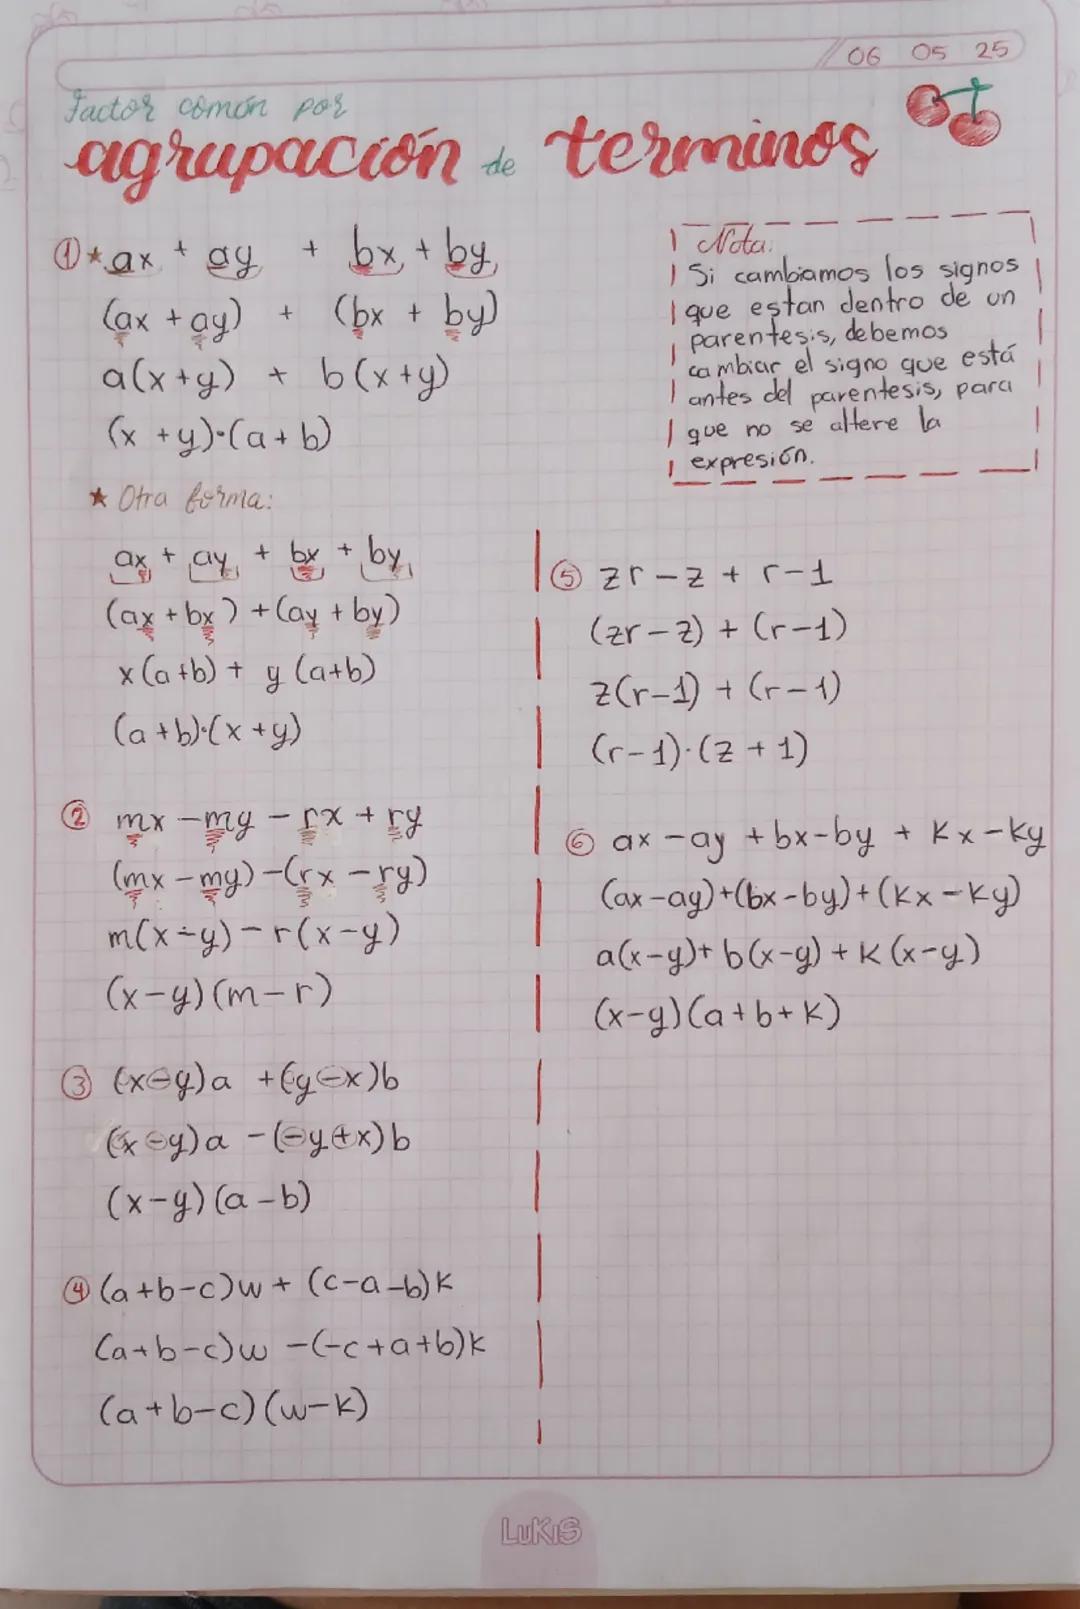 06 05 25
Factor común por
agrupación de terminos
① * ax + ay + bx + by
(ax + ay) + (bx + by)
a(x+y) + b(x+y)
(x+y)·(a+b)
* Otra forma:
ax + ay + bx + by
(ax + bx) + (ay + by)
x(a+b) + y(a+b)
(a+b)·(x+y)
② mx - my - rx + ry
(mx - my) - (rx - ry)
m(x-y) - r(x-y)
(x-y)(m-r)
③ (x-y)a + (y-x)b
(x-y)a - (-y+x)b
(x-y)(a-b)
④ (a+b-c)w + (c-a-b)k
(a+b-c)w - (-c+a+b)k
(a+b-c)(w-k)
Nota:
Si cambiamos los signos
que estan dentro de un
parentesis, debemos
cambiar el signo que está
antes del parentesis, para
que no se altere la
expresión.
⑤ zr - z + r - 1
(zr - z) + (r-1)
z(r-1) + (r-1)
(r-1)·(z+1)
⑥ ax - ay + bx - by + kx - ky
(ax - ay) + (bx - by) + (kx - ky)
a(x-y) + b(x-y) + k(x-y)
(x-y)(a+b+k)
LUKIS